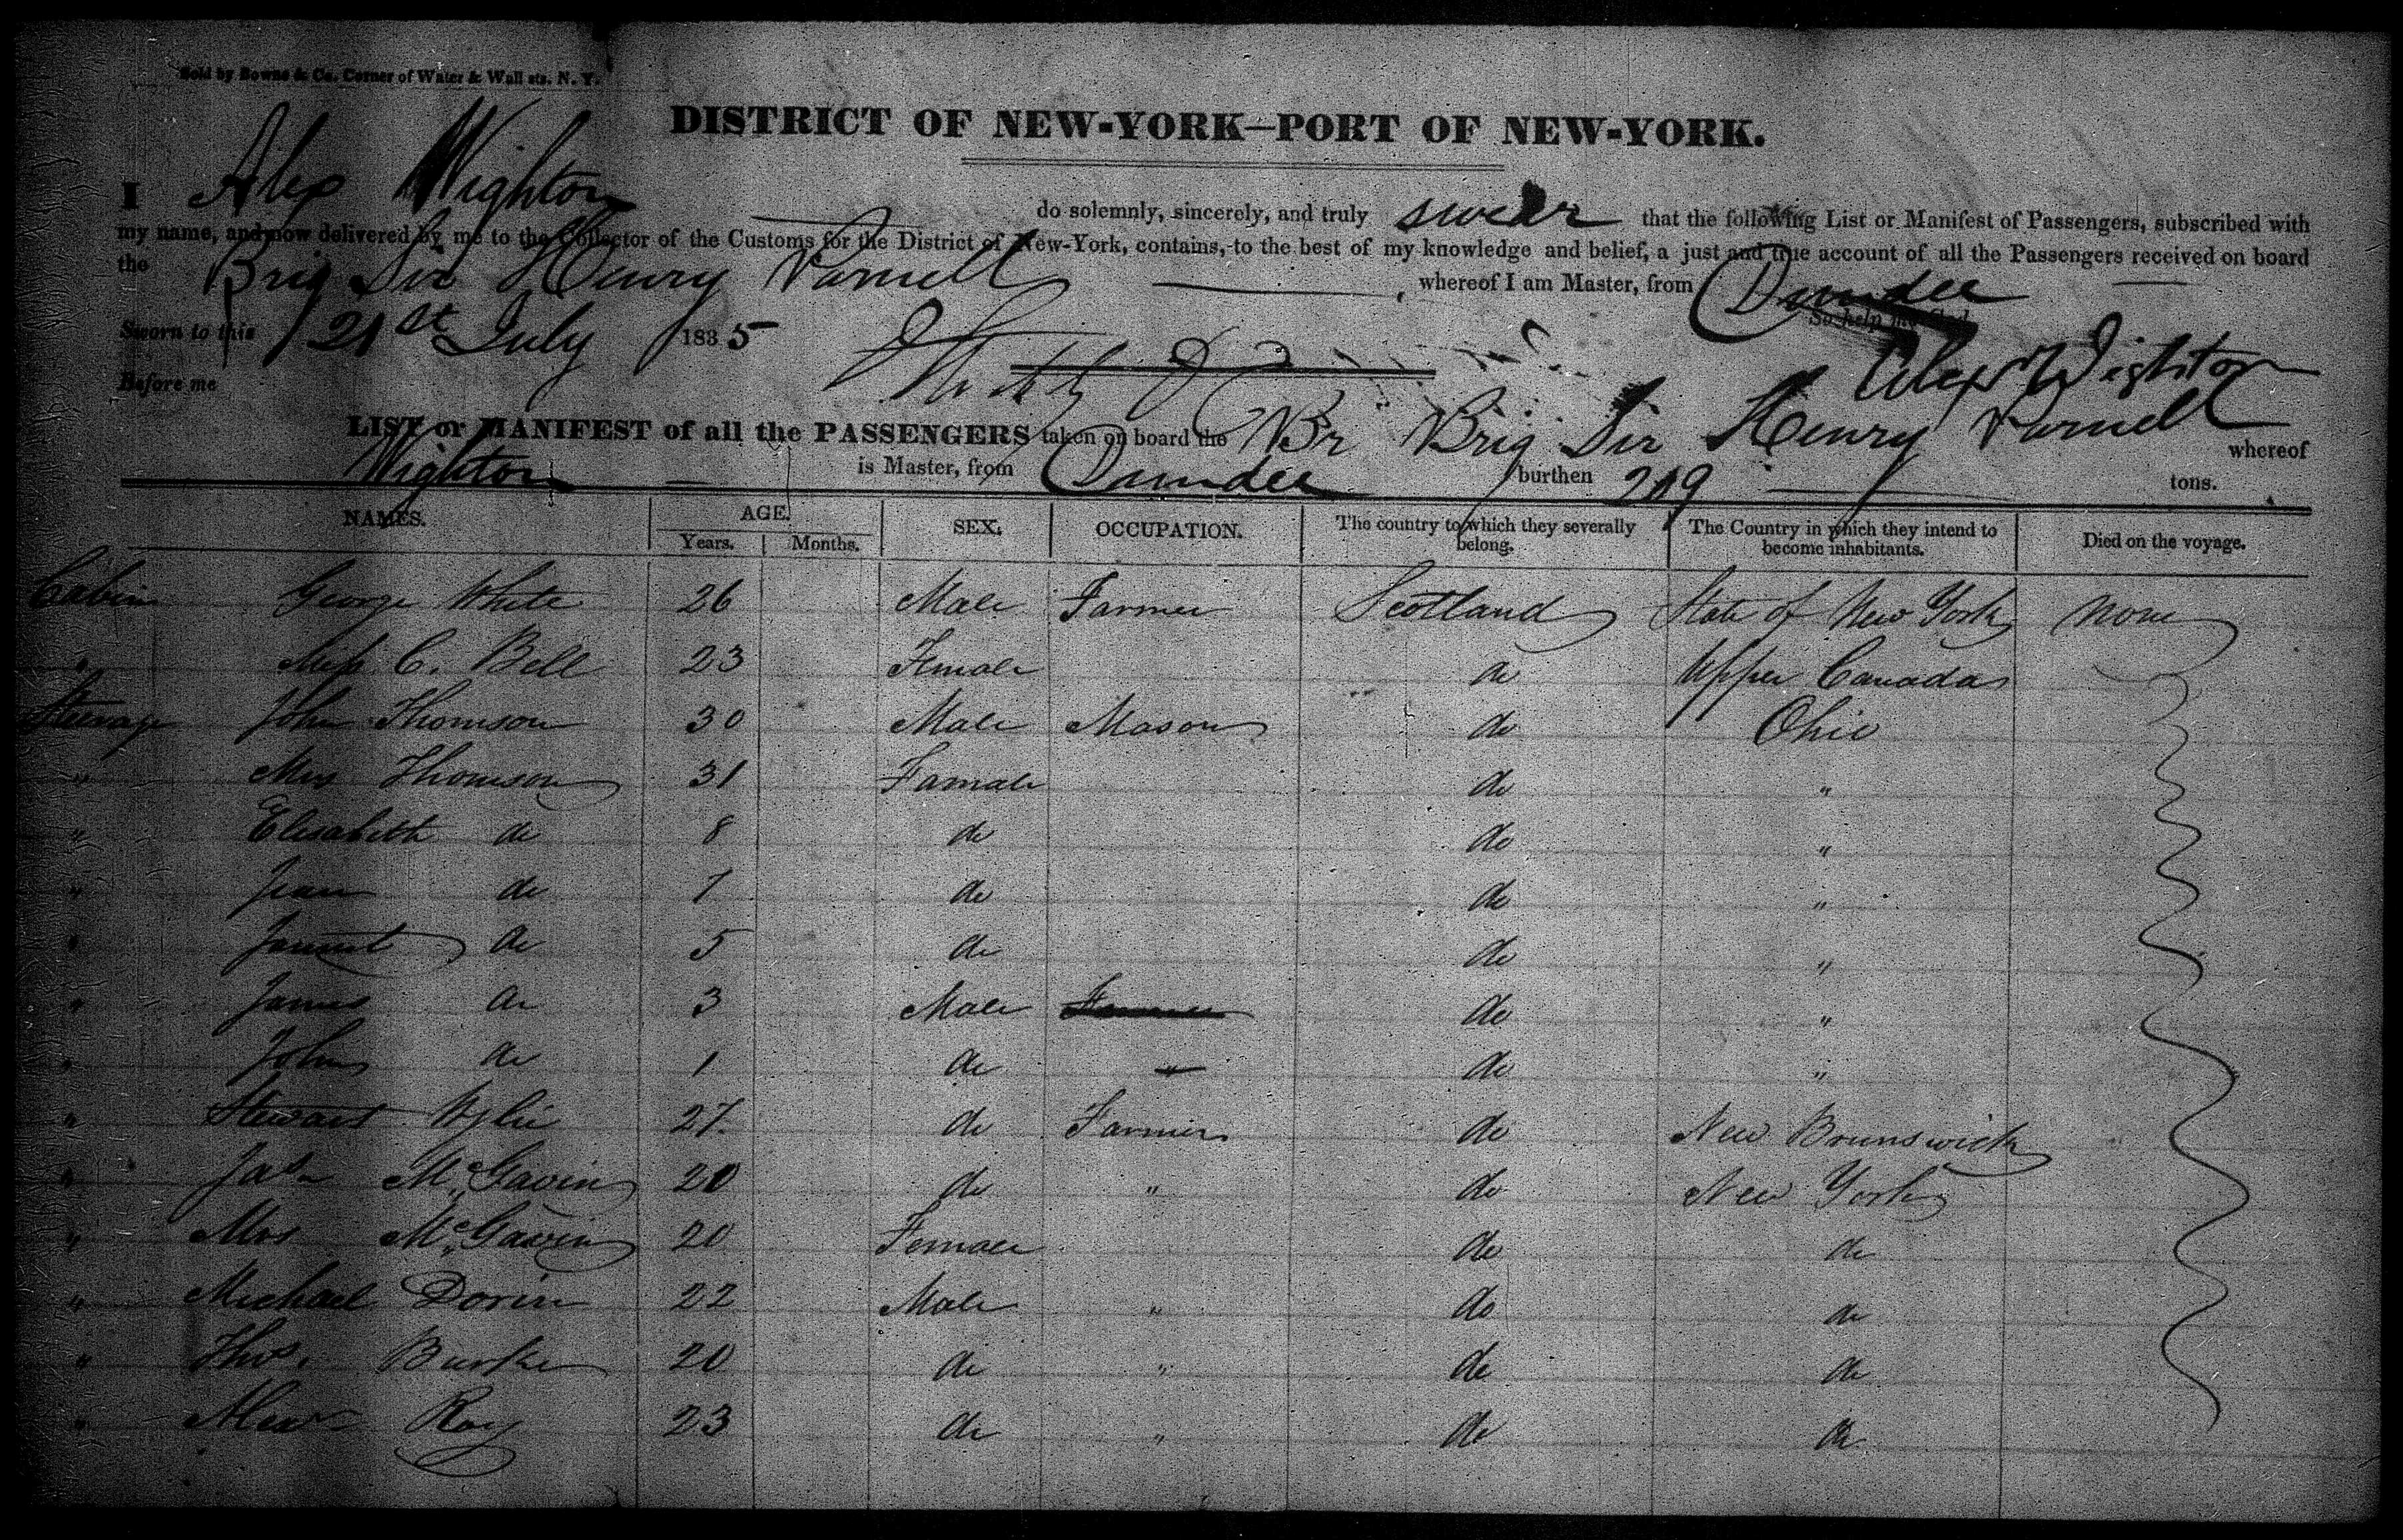 Sold by Bowne & Co. Corner of Water & Wall sts. N. Y.
DISTRICT OF NEW-YORK—PORT OF NEW-YORK.
I Alex Wighton do solemnly, sincerely, and truly swear that the following List or Manifest of Passengers, subscribed with
my name, and now delivered by me to the Collector of the Customs for the District of New-York, contains, to the best of my knowledge and belief, a just and true account of all the Passengers received on board
the Brig Sir Henry Parnell, whereof I am Master, from Dundee
So help me God.
Sworn to this 21st July 1835
Alexr Wighton
Before me
LIST or MANIFEST of all the PASSENGERS taken on board the Br Brig Sir Henry Parnell whereof
Wighton is Master, from Dundee burthen 209 tons.
NAMES. AGE. SEX. OCCUPATION. The country to which they severally belong. The Country in which they intend to become inhabitants. Died on the voyage.
Years. Months.
Cabin George White 26 Male Farmer Scotland State of New York None
" Miss C. Bell 23 Female do Upper Canada
Steerage John Thomson 30 Male Mason do Ohio
" Mrs Thomson 31 Famale do "
" Elisabeth do 8 do do "
" Jean do 7 do do "
" Jannet do 5 do do "
" James do 3 Male Farmer do "
" John do 1 do " do "
" Stewart Wylie 27 do Farmer do New Brunswick
" Jas McGavin 20 do " do New York
" Mrs McGavin 20 Female do do
" Michael Dorin 22 Male " do do
" Thos. Burke 20 do " do do
" Alexr Roy 23 do " do do